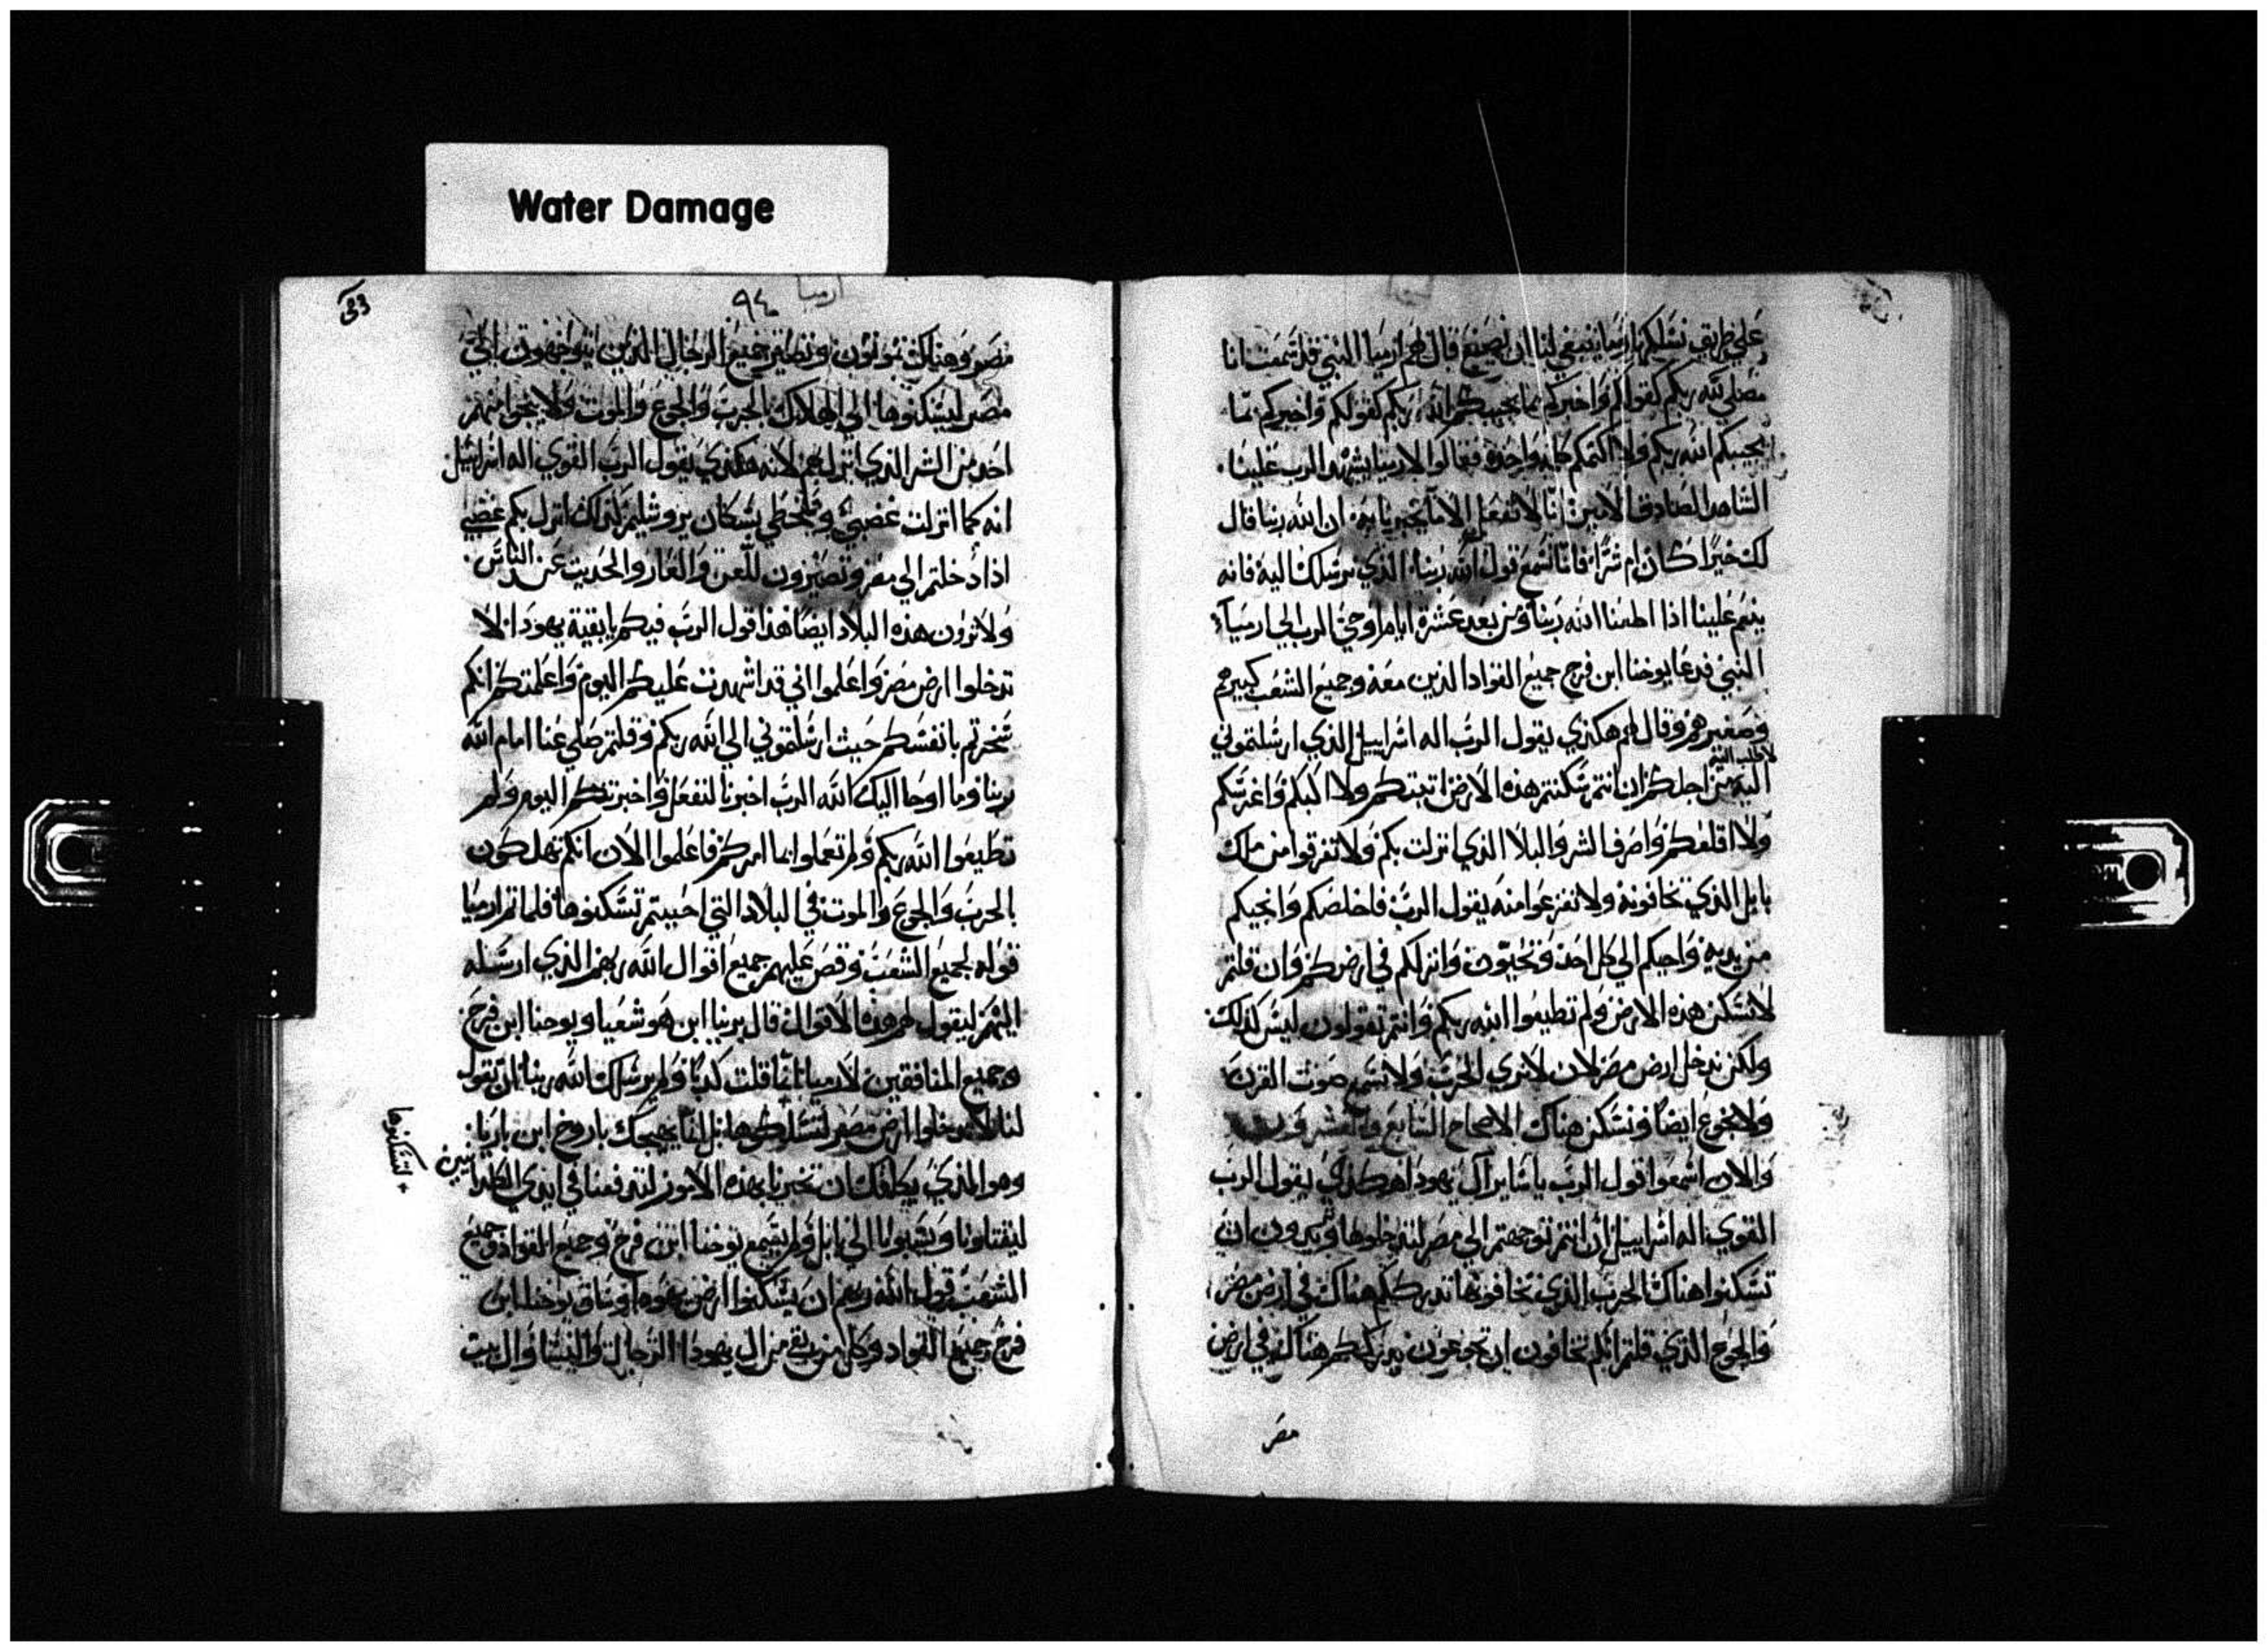 Water Damage
على طريق نسلكها ارميا ينبغي لنا ان نصنع قال لهم ارميا النبي قد سمعت انا
مصلي لله ربكم كقولكم واخبركم بما يجيبكم الله ربكم كقولكم واخبركم بما
يجيبكم الله ربكم ولا اكتمكم كلمه واحدة فقالوا لارميا يشهد الرب علينا
الشاهد الصادق الامين انا لا نفعل الا ما تخبرنا به ان الله ربنا قال
لك خيرًا كان ام شرًا فانا نسمع قول الله ربنا الذي نرسلك اليه فانه
ينعم علينا اذا اطعنا الله ربنا ومن بعد عشرة ايام اوحي الرب الي ارميا
النبي فدعا يوحنا ابن فرح جميع القواد الذين معه وجميع الشعب كبيرهم
وصغيرهم وقال لهم هكذي يقول الرب اله اسراييل الذي ارسلتموني
اليه من اجلكم ان انتم سكنتم هذه الارض اتبتكم ولا اكبكم واغرسكم
ولا اقلعكم واصرف الشر والبلا الذي انزلت بكم ولا تفرقوا من ملك
بابل الذي تخافونه ولا تفزعوا منه يقول الرب فاخلصكم وانجيكم
من يديه واحبكم الي كل احد وتحيون وانزلكم في ارضكم وان قلتم
لا نسكن هذه الارض ولم تطيعوا الله ربكم وانتم تقولون ليس كذلك
ولكن ندخل ارض مصر لان لا نري الحرب ولا نسمع صوت القرن
ولا نجوع ايضًا ونسكن هناك الاصحاح السابع والعشرون
والان اسمعوا قول الرب يا ساير آل يهودا هكذي يقول الرب
القوي اله اسراييل ان انتم توجهتم الي مصر لتدخلوها وتريدون ان
تسكنوا هناك الحرب الذي تخافونها تدرككم هناك في ارض مصر
والجوع الذي قلتم انكم تخافون ان تجوعون يدرككم هناك في ارض
مصر
ارميا
٩٤
مصر وهناك تموتون وتصير جميع الرجال الذين يتوجهون الي
مصر ليسكنوها الي الهلاك بالحرب والجوع والموت ولا ينجوا منهم
احد من الشر الذي انزل بهم لانه هكذي يقول الرب القوي اله اسراييل
انه كما انزلت غضبي وسخطي بسكان يروشليم كذلك انزل بكم غضبي
اذا دخلتم الي مصر وتصيرون للعن والعار والحديث عند الناس
ولا ترون هذه البلاد ايضًا هذا قول الرب فيكم يا بقية يهودا الا
تدخلوا ارض مصر واعلموا اني قد اشهدت عليكم اليوم واعلمتكم انكم
سخرتم بانفسكم حيث ارسلتموني الي الله ربكم وقلتم صلي عنا امام الله
ربنا وما اوحا اليك الله الرب اخبرنا لنفعل واخبرتكم اليوم ولم
تطيعوا الله ربكم ولم تعملوا بما امركم فاعلموا الان انكم تهلكون
بالحرب والجوع والموت في البلاد التي احببتم تسكنوها فلما تم ارميا
قوله لجميع الشعب وقص عليهم جميع اقوال الله ربهم الذي ارسله
اليهم ليقول لهم هذه الاقوال قال يرنيا ابن هوشعيا ويوحنا ابن فرح
وجميع المنافقين لارميا انما قلت كذبًا ولم يرسلك الله ربنا ان تقول
لنا لا تدخلوا ارض مصر لتسكنوها بل انما يهيجك باروخ ابن باريا
لتسكنوها
وهو الذي يكلفك ان تخبرنا بهذه الامور لتدفعنا في ايدي الكلدانيين
ليقتلونا ويسبونا الي بابل ولم يسمع يوحنا ابن فرح وجميع القواد وجميع
الشعب قول الله ربهم ان يسكنوا ارض يهودا وساق يوحنا ابن
فرح وجميع القواد وكل من بقي من ال يهودا الرجال والنسا وال بيت